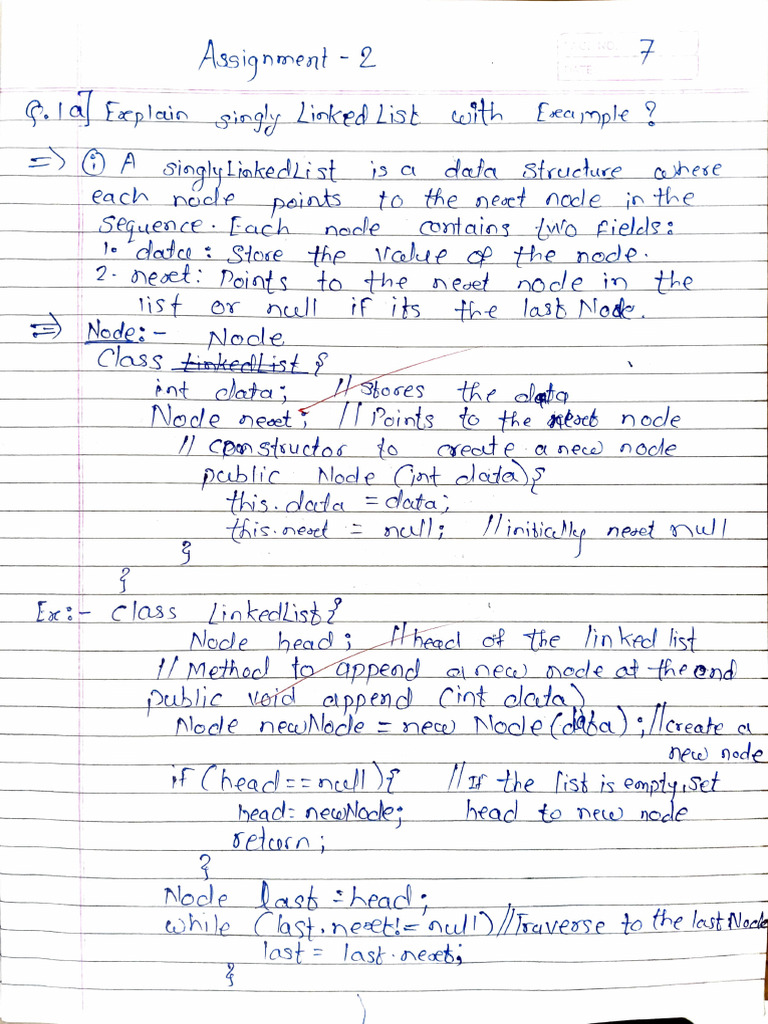 Assignment - 2
7
Q.1a] Explain singly LinkedList with Example?
=> ① A singlyLinkedList is a data structure where
each node points to the next node in the
sequence. Each node contains two fields:
1. data: Store the value of the node.
2. next: Points to the next node in the
list or null if its the last Node.
=> Node:- Node
Class LinkedList {
int data; // Stores the data
Node next; // Points to the next node
// constructor to create a new node
public Node (int data){
this.data = data;
this.next = null; //initically next null
}
}
Ex:- class LinkedList{
Node head; //head of the linked list
// Method to append a new node at the end
public void append (int data)
Node newNode = new Node(data); //create a
new node
if (head==null){ // If the list is empty, set
head=newNode; head to new node
return;
}
Node last =head;
while (last.next!= null) //Traverse to the last Node
last = last.next;
}